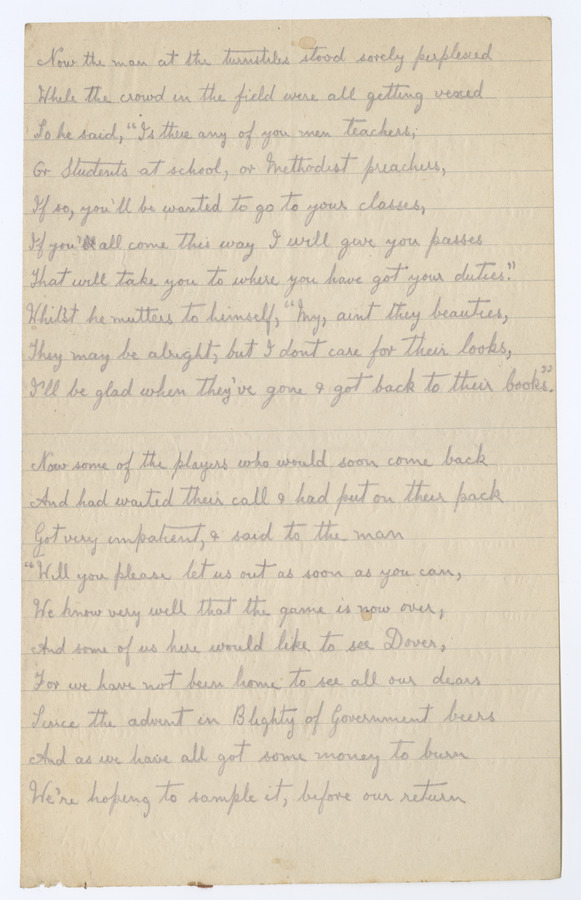 Now the man at the turnstiles stood sorely perplexed
While the crowd in the field were all getting vexed
So he said, "Is there any of you men teachers,
Or Students at school, or Methodist preachers,
If so, you'll be wanted to go to your classes,
If you'll all come this way I will give you passes
That will take you to where you have got your duties."
Whilst he mutters to himself, "My, aint they beauties,
They may be alright, but I dont care for their looks,
I'll be glad when they've gone & got back to their books."
Now some of the players who would soon come back
And had waited their call & had put on their pack
Got very impatient, & said to the man
"Will you please let us out as soon as you can,
We know very well that the game is now over,
And some of us here would like to see Dover,
For we have not been home to see all our dears
Since the advent in Blighty of Government beers
And as we have all got some money to burn
We're hoping to sample it, before our return